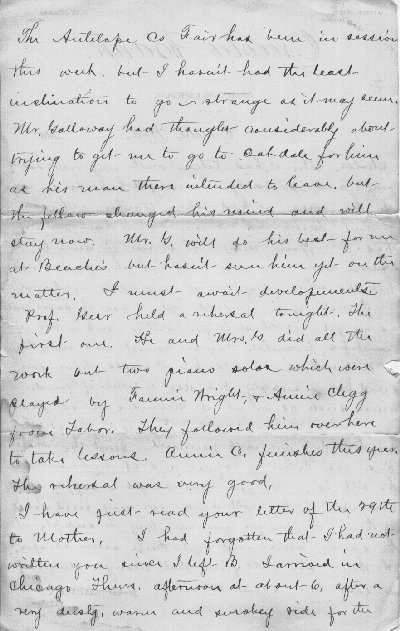 The Antelope Co Fair has been in session
this week. but I haven't had the least
inclination to go - strange as it may seem.
Mr. Galloway had thought considerably about
trying to get me to go to Oakdale for him
as his man there intended to leave, but
the fellow changed his mind and will
stay now. Mr. G. will do his best for me
at Beache's but hasn't seen him yet on the
matter. I must await developements
Prof. Gerr held a rehersal tonight. The
first one. He and Mrs. G. did all the
work but two piano solos which were
played by Fannie Wright, & Annie Clegg
from Tabor. They followed him over here
to take lessons. Annie C. finishes this year.
The rehersal was very good.
I have just read your letter of the 29th
to Mother. I had forgotten that I had not
written you since I left B. I arrived in
Chicago, Thurs. afternoon at about 6, after a
very dusty, warm and smokey ride for the